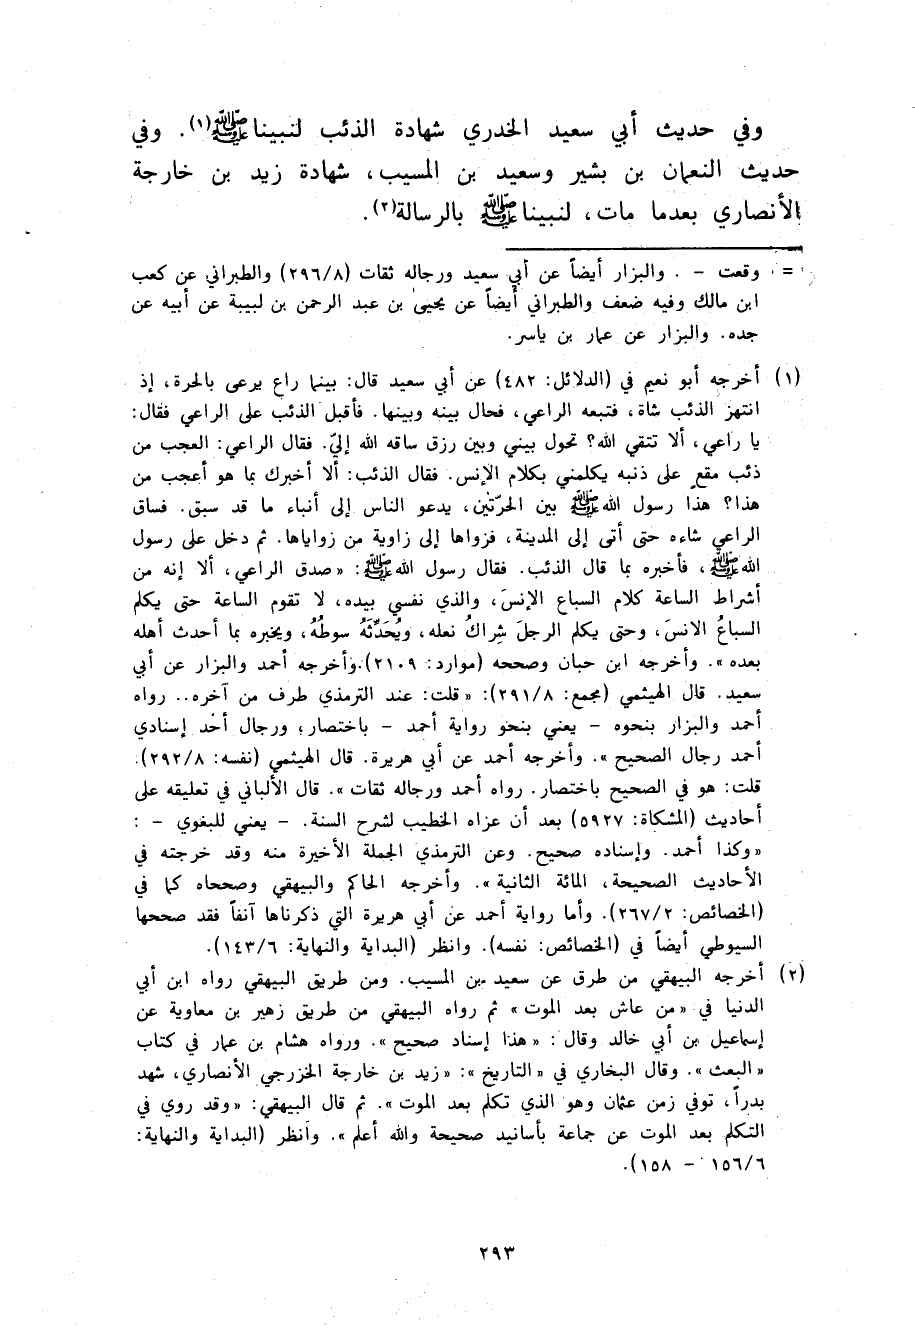 وفي حديث أبي سعيد الخدري شهادة الذئب لنبينا ﷺ(١). وفي
حديث النعمان بن بشير وسعيد بن المسيب، شهادة زيد بن خارجة
الأنصاري بعدما مات، لنبينا ﷺ بالرسالة(٢).
= وقعت - . والبزار أيضاً عن أبي سعيد ورجاله ثقات (٢٩٦/٨) والطبراني عن كعب
ابن مالك وفيه ضعف والطبراني أيضاً عن يحيى بن عبد الرحمن بن لبيبة عن أبيه عن
جده. والبزار عن عمار بن ياسر.
(١) أخرجه أبو نعيم في (الدلائل: ٤٨٢) عن أبي سعيد قال: بينما راع يرعى بالحرة، إذ
انتهز الذئب شاة، فتبعه الراعي، فحال بينه وبينها. فأقبل الذئب على الراعي فقال:
يا راعي، ألا تتقي الله؟ تحول بيني وبين رزق ساقه الله إليّ. فقال الراعي: العجب من
ذئب مقعٍ على ذنبه يكلمني بكلام الإنس. فقال الذئب: ألا أخبرك بما هو أعجب من
هذا؟ هذا رسول الله ﷺ بين الحرّتين، يدعو الناس إلى أنباء ما قد سبق. فساق
الراعي شاءه حتى أتى إلى المدينة، فزواها إلى زاوية من زواياها. ثم دخل على رسول
الله ﷺ، فأخبره بما قال الذئب. فقال رسول الله ﷺ: «صدق الراعي، ألا إنه من
أشراط الساعة كلام السباع الإنسَ، والذي نفسي بيده، لا تقوم الساعة حتى يكلم
السباعُ الانسَ، وحتى يكلم الرجلَ شِراكُ نعله، ويُحَدِّثَهُ سوطُهُ، ويخبره بما أحدث أهله
بعده». وأخرجه ابن حبان وصححه (موارد: ٢١٠٩).وأخرجه أحمد والبزار عن أبي
سعيد. قال الهيثمي (مجمع: ٢٩١/٨): «قلت: عند الترمذي طرف من آخره.. رواه
أحمد والبزار بنحوه - يعني بنحو رواية أحمد - باختصار، ورجال أحد إسنادي
أحمد رجال الصحيح». وأخرجه أحمد عن أبي هريرة. قال الهيثمي (نفسه: ٢٩٢/٨).
قلت: هو في الصحيح باختصار. رواه أحمد ورجاله ثقات». قال الألباني في تعليقه على
أحاديث (المشكاة: ٥٩٢٧) بعد أن عزاه الخطيب لشرح السنة. - يعني للبغوي - :
«وكذا أحمد. وإسناده صحيح. وعن الترمذي الجملة الأخيرة منه وقد خرجته في
الأحاديث الصحيحة، المائة الثانية». وأخرجه الحاكم والبيهقي وصححاه كما في
(الخصائص: ٢٦٧/٢). وأما رواية أحمد عن أبي هريرة التي ذكرناها آنفاً فقد صححها
السيوطي أيضاً في (الخصائص: نفسه). وانظر (البداية والنهاية: ١٤٣/٦).
(٢) أخرجه البيهقي من طرق عن سعيد بن المسيب. ومن طريق البيهقي رواه ابن أبي
الدنيا في «من عاش بعد الموت» ثم رواه البيهقي من طريق زهير بن معاوية عن
إسماعيل بن أبي خالد وقال: «هذا إسناد صحيح». ورواه هشام بن عمار في كتاب
«البعث». وقال البخاري في «التاريخ»: «زيد بن خارجة الخزرجي الأنصاري، شهد
بدراً، توفي زمن عثمان وهو الذي تكلم بعد الموت». ثم قال البيهقي: «وقد روي في
التكلم بعد الموت عن جماعة بأسانيد صحيحة والله أعلم». وانظر (البداية والنهاية:
١٥٦/٦ - ١٥٨).
٢٩٣